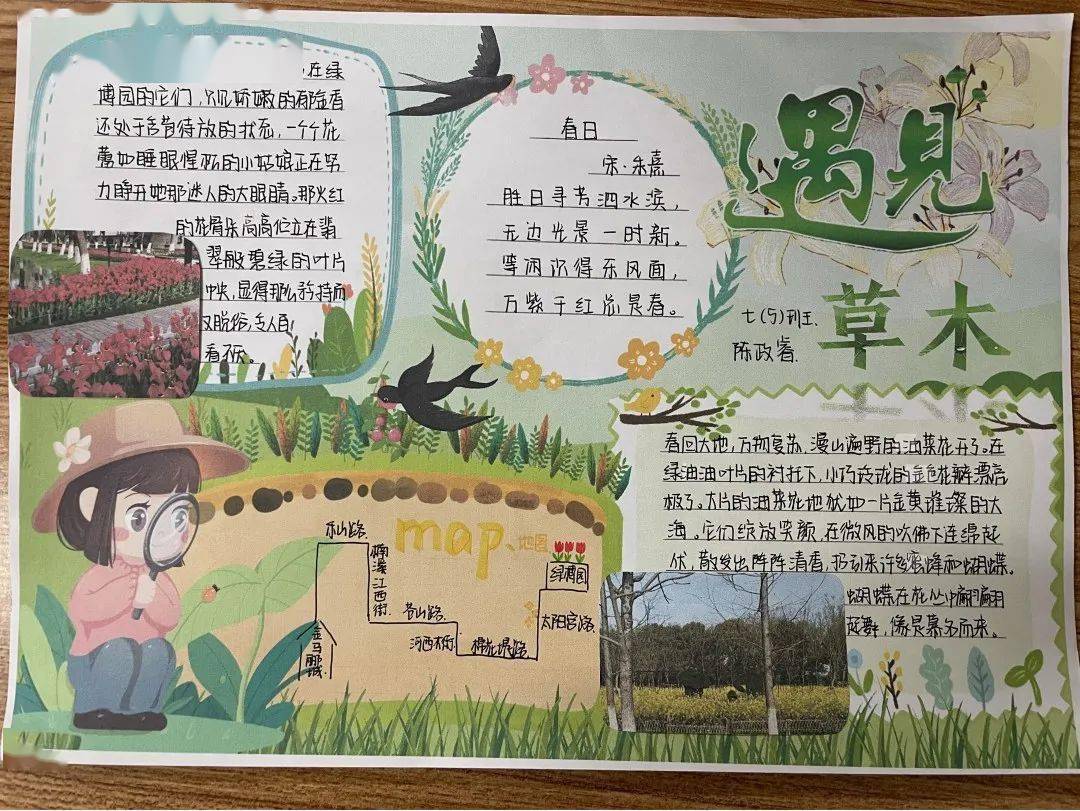 ，在绿
博园的它们，只见娇嫩的郁金香
还处于含苞待放的状态，一个个花
蕾如睡眼惺忪的小姑娘正在努
力睁开她那迷人的大眼睛。那火红
的花骨朵高高伫立在翡
翠般碧绿的叶片
中央，显得那么矜持而
又脱俗，令人百
看不厌。
春日
宋·朱熹
胜日寻芳泗水滨，
无边光景一时新。
等闲识得东风面，
万紫千红总是春。
遇见
草木
七(5)班王
陈政睿
春回大地，万物复苏，漫山遍野的油菜花开了。在
绿油油叶片的衬托下，小巧玲珑的金色花瓣漂亮
极了。大片的油菜花地犹如一片金黄璀璨的大
海。它们绽放笑颜，在微风的吹佛下连绵起
伏，散发出阵阵清香，引来许多蜜蜂和蝴蝶。
蝴蝶在花丛中翩翩
起舞，像是慕名而来。
map、地图
乐山路
楠溪江西街
苍山路
河西大街
棉花堤路
太阳宫路
绿博园
金马郦城